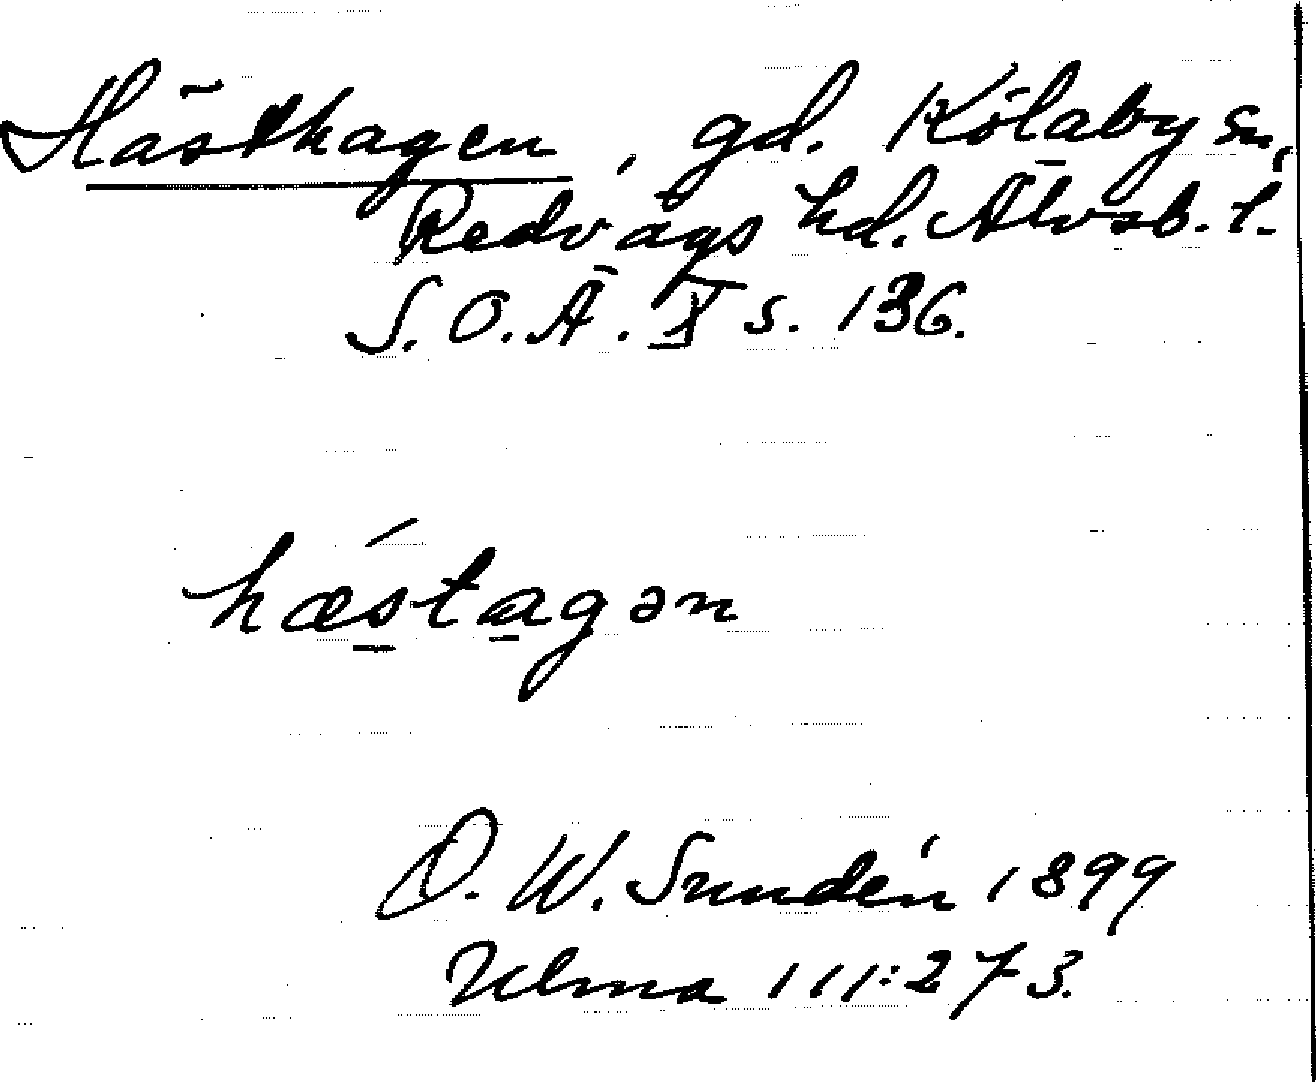 Hästhagen, gd. Kölaby sn,
Redvägs hd. Älvsb. l.
S. O. Ä. X s. 136.
hǽstagən
D. W. Sundén 1899
Ulma 111:273.